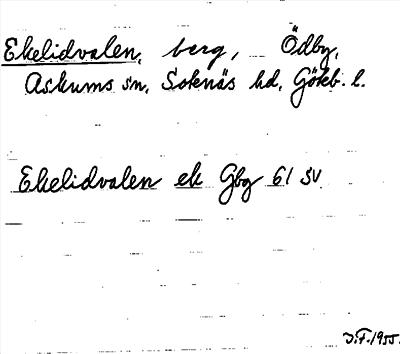 Ekelidvalen, berg, Ödby,
Askums sn, Sotenäs hd, Götеb. l.
Ekelidvalen ek Gbg 61 SV
J.F. 1955.